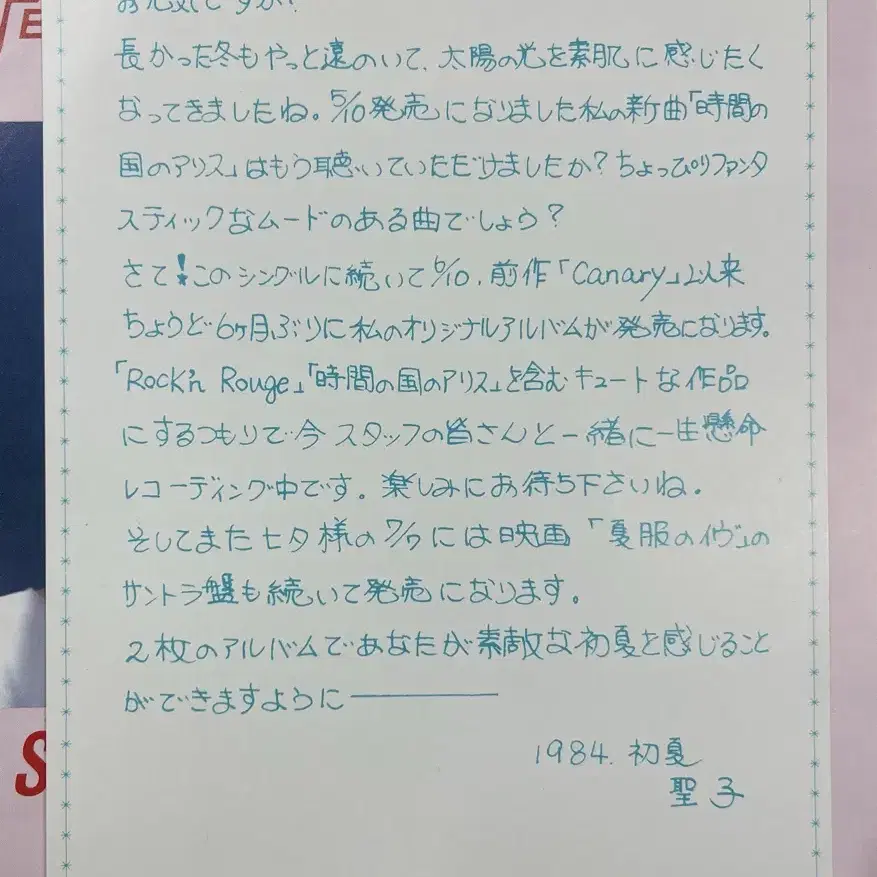 お元気ですか?
長かった冬もやっと遠のいて、太陽の光を素肌に感じたく
なってきましたね。5/10発売になりました私の新曲「時間の
国のアリス」はもう聴いていただけましたか?ちょっぴりファンタ
スティックなムードのある曲でしょう?
さて!このシングルに続いて6/10、前作「Canary」以来
ちょうど6ヶ月ぶりに私のオリジナルアルバムが発売になります。
「Rock'n Rouge」「時間の国のアリス」を含むキュートな作品
にするつもりで今スタッフの皆さんと一緒に一生懸命
レコーディング中です。楽しみにお待ち下さいね。
そしてまた七夕様の7/7には映画「夏服のイヴ」の
サントラ盤も続いて発売になります。
2枚のアルバムであなたが素敵な初夏を感じること
ができますように――
1984. 初夏
聖子
S